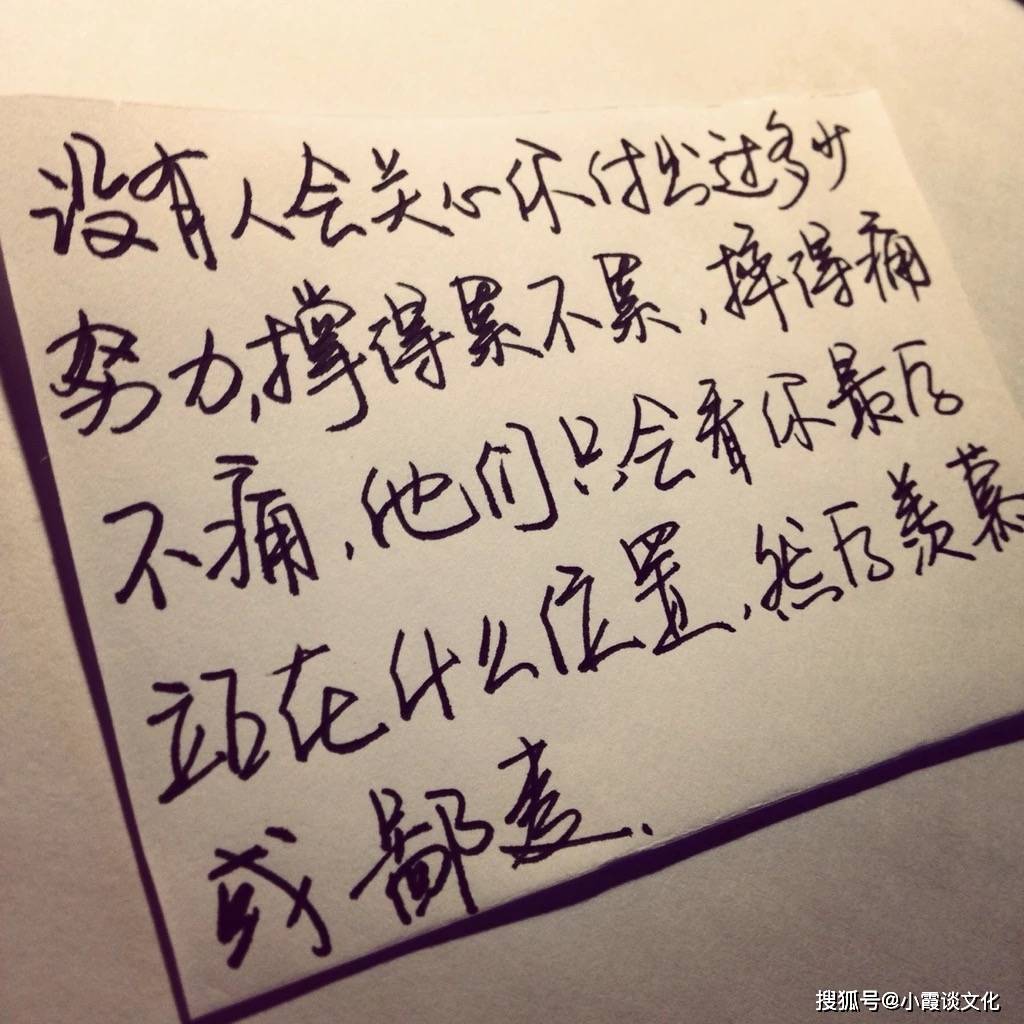 没有人会关心你付出过多少
努力,撑得累不累,摔得痛
不痛,他们只会看你最后
站在什么位置,然后羡慕
或鄙麦.
搜狐号@小霞谈文化